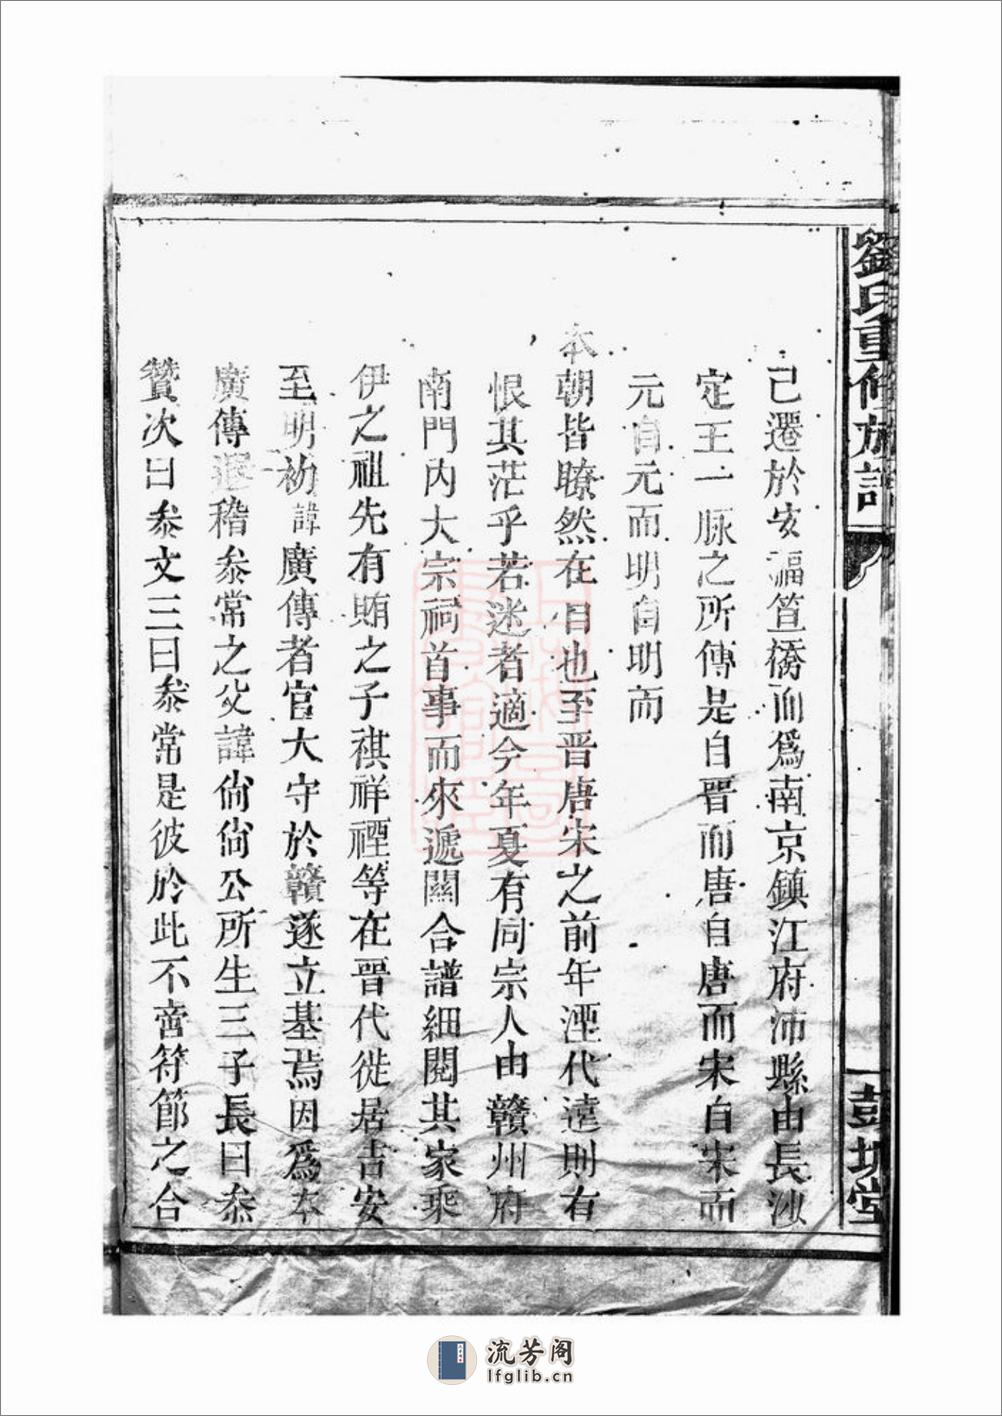 劉氏重修族譜
彭城堂
己遷於安福笪橋而爲南京鎮江府沛縣由長沙
定王一脉之所傳是自晋而唐自唐而宋自宋而
元自元而明自明而
本朝皆瞭然在目也至晋唐宋之前年湮代遠則有
恨其茫乎若迷者適今年夏有同宗人由贛州府
南門内大宗祠首事而來遞關合譜細閱其家乘
伊之祖先有賄之子祺祥禋等在晋代徙居吉安
至明初諱廣傳者官大守於贛遂立基焉因爲本
廣傳遐稽叅常之父諱尙尙公所生三子長曰叅
贊次曰叅文三曰叅常是彼於此不啻符節之合
流芳阁
lfglib.cn